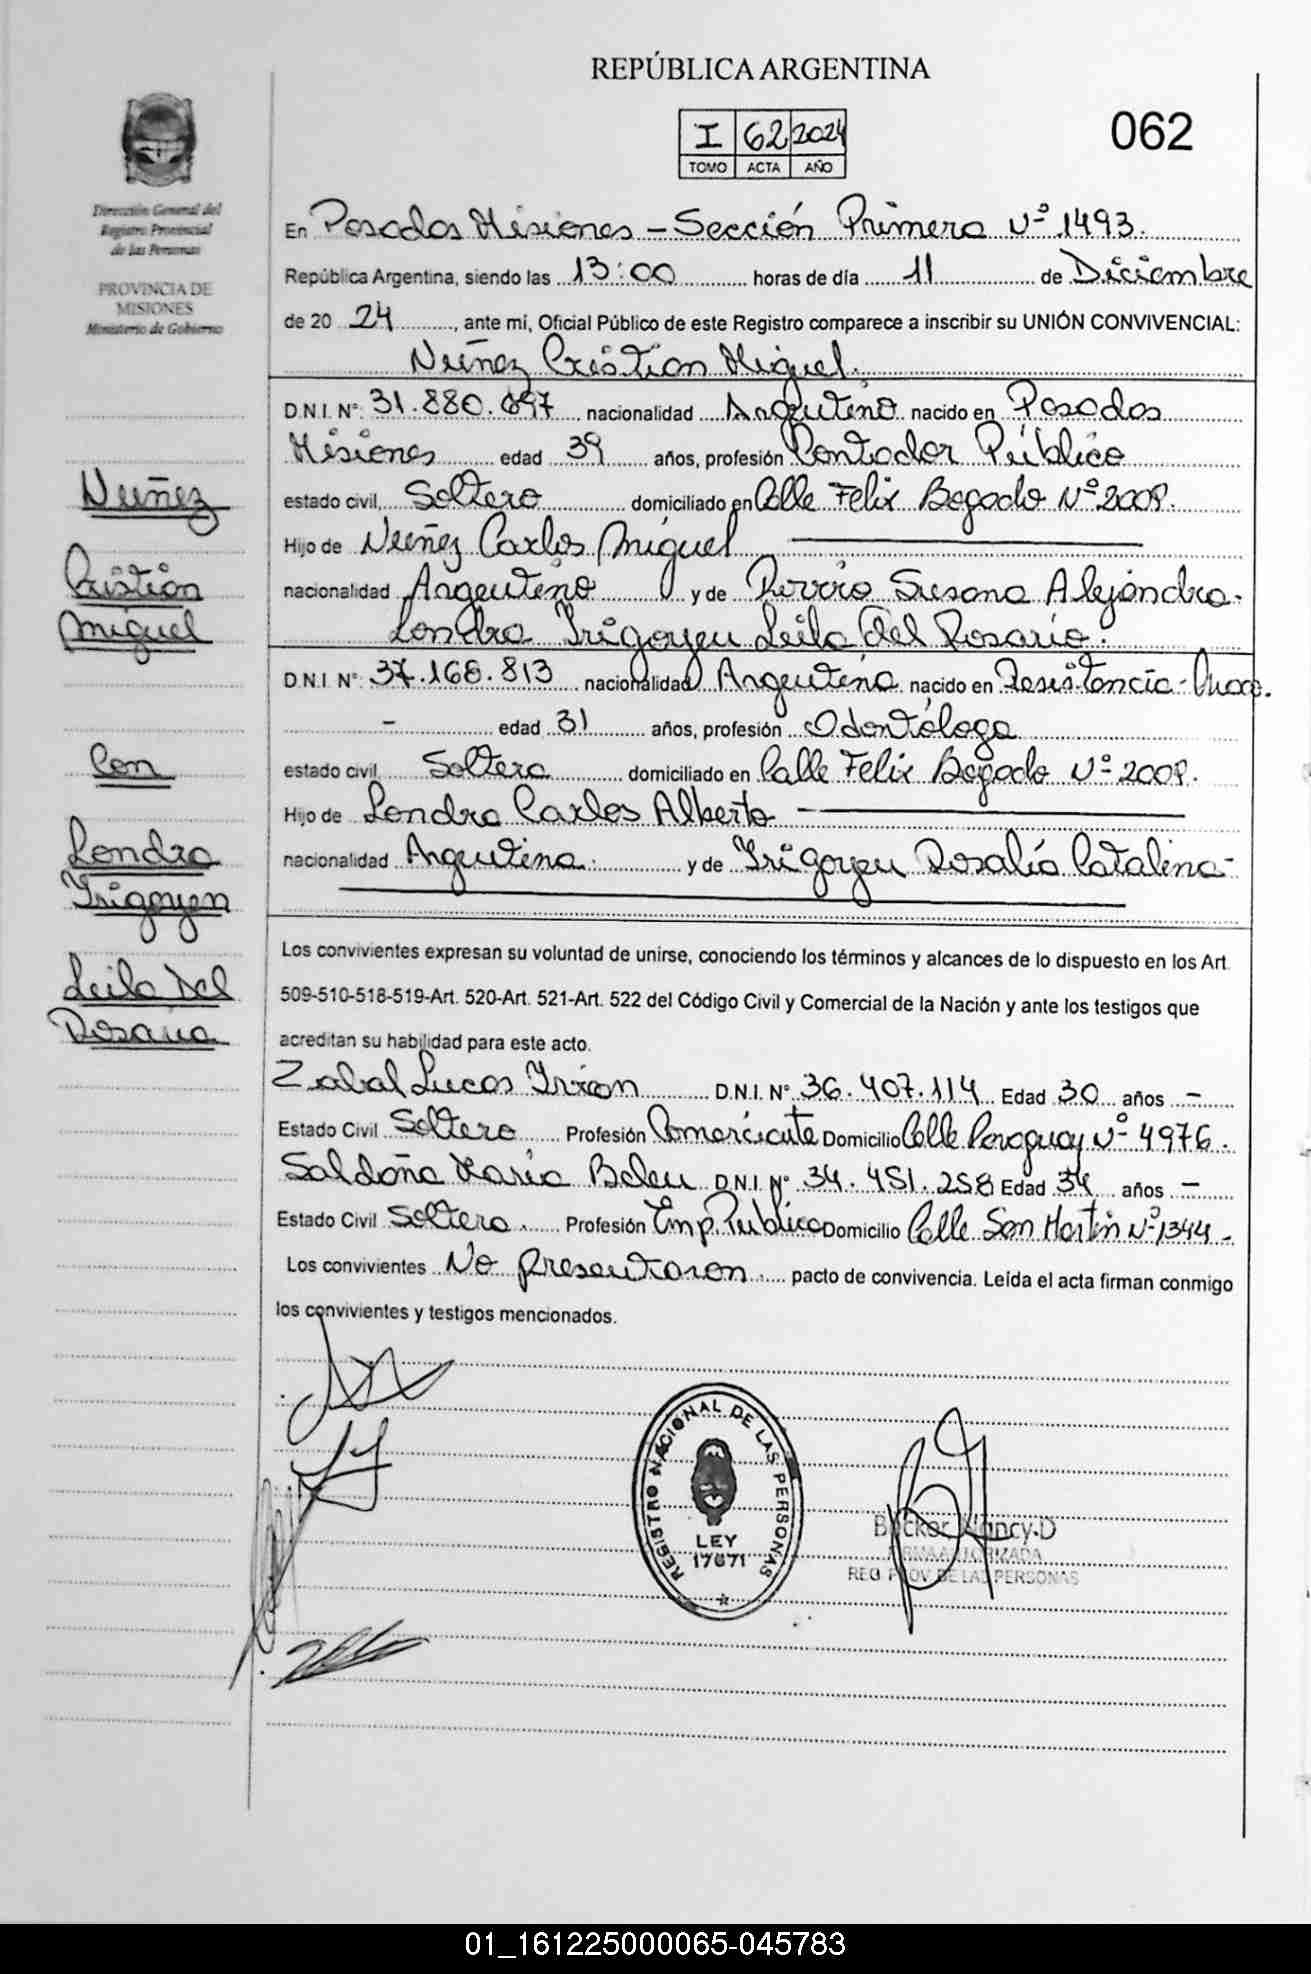 REPÚBLICA ARGENTINA
062
I 62 2024
TOMO ACTA AÑO
Dirección General del
Registro Provincial
de las Personas
PROVINCIA DE
MISIONES
Ministerio de Gobierno
En Posadas Misiones - Sección Primera Nº 1493.
República Argentina, siendo las 13:00 horas de día 11 de Diciembre
de 20 24, ante mí, Oficial Público de este Registro comparece a inscribir su UNIÓN CONVIVENCIAL:
Nuñez Cristian Miguel.
D.N.I. Nº: 31.880.697 nacionalidad Argentino nacido en Posadas
Misiones edad 39 años, profesión Contador Público
estado civil, Soltero domiciliado en Calle Felix Bogado Nº 2008.
Hijo de Nuñez Carlos Miguel
nacionalidad Argentino y de Susana Alejandra-
Londra Yrigoyen Leila Del Rosario.
D.N.I. Nº: 37.168.813 nacionalidad Argentina nacido en Resistencia - Chaco.
- edad 31 años, profesión Odontóloga
estado civil, Soltera domiciliado en Calle Felix Bogado Nº 2008.
Hijo de Londra Carlos Alberto
nacionalidad Argentina. y de Yrigoyen Rosalía Catalina-
Nuñez
Cristian
Miguel
Con
Londra
Yrigoyen
Leila Del
Rosario
Los convivientes expresan su voluntad de unirse, conociendo los términos y alcances de lo dispuesto en los Art.
509-510-518-519-Art. 520-Art. 521-Art. 522 del Código Civil y Comercial de la Nación y ante los testigos que
acreditan su habilidad para este acto.
Zabal Lucas D.N.I. Nº 36.407.114 Edad 30 años -
Estado Civil Soltero Profesión Comerciante Domicilio Calle Paraguay Nº 4976.
Saldaña Maria Belen D.N.I. Nº 34.451.258 Edad 34 años -
Estado Civil Soltera. Profesión Emp. Publico Domicilio Calle San Martin Nº 1344-
Los convivientes No presentaron pacto de convivencia. Leída el acta firman conmigo
los convivientes y testigos mencionados.
REGISTRO NACIONAL DE LAS PERSONAS
LEY
17671
Backer Nancy.D
FIRMA AUTORIZADA
REG PROV DE LAS PERSONAS
01_161225000065-045783